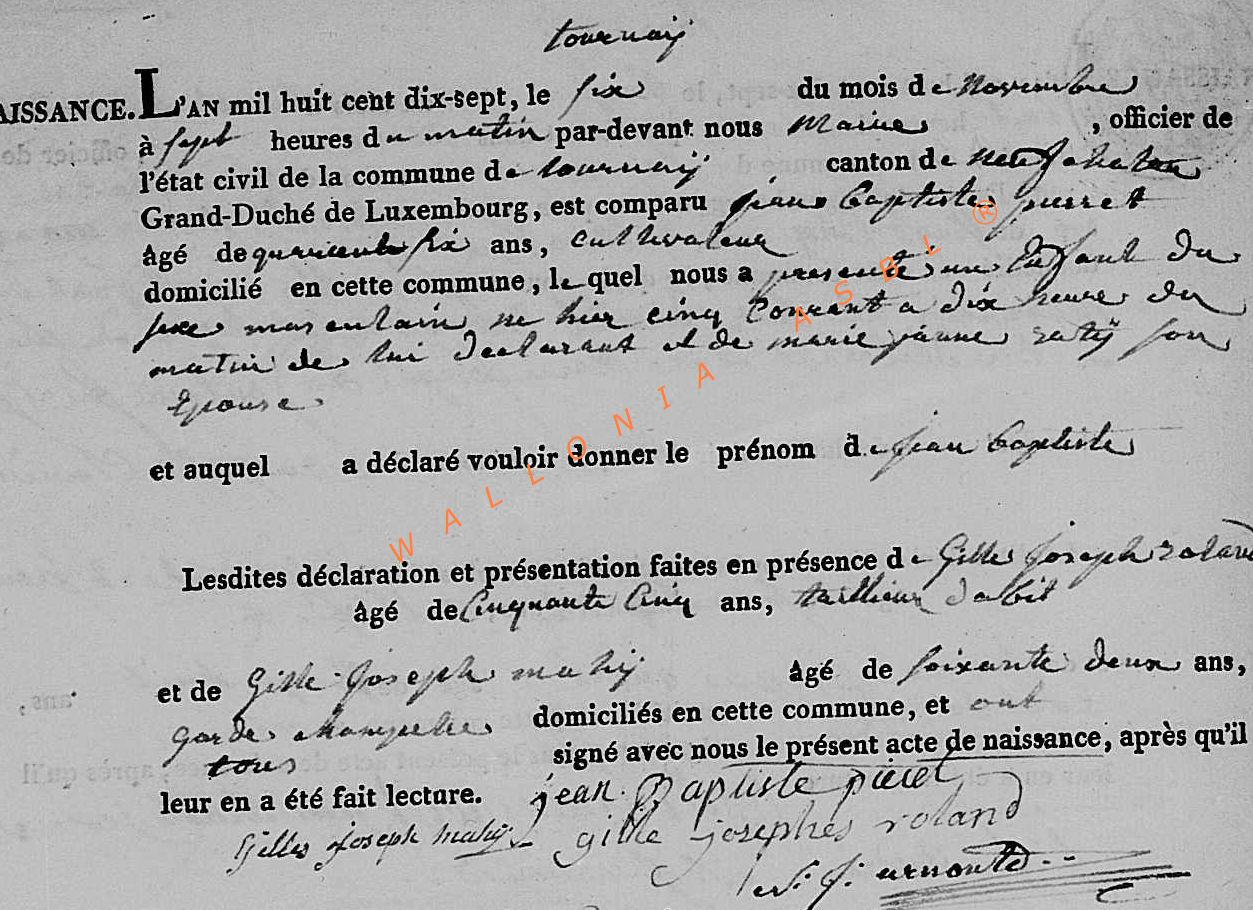 tournaij
AISSANCE. L'AN mil huit cent dix-sept, le six du mois de Novembre
à sept heures du matin par-devant nous Maire , officier de
l'état civil de la commune de tournaij canton de neufchateau
Grand-Duché de Luxembourg, est comparu jean baptiste pierret
âgé de quarente six ans, Cultivateur
domicilié en cette commune, lequel nous a presenté un Enfant du
sexe masculain ne hier cinq Courant a dix heure du
matin de lui declarant et de marie jeanne satij son
Epouse
et auquel a déclaré vouloir donner le prénom de jean baptiste
Lesdites déclaration et présentation faites en présence de Gille Joseph roland
âgé de Cinquante Cinq ans, taillieur dabit
et de Gille Joseph mahij âgé de soixante deux ans,
garde champetre domiciliés en cette commune, et ont
tous signé avec nous le présent acte de naissance, après qu'il
leur en a été fait lecture. jean Baptiste pieret
Gilles joseph mahij gille josephes roland
J. arnould
WALLONIA ASBL ®